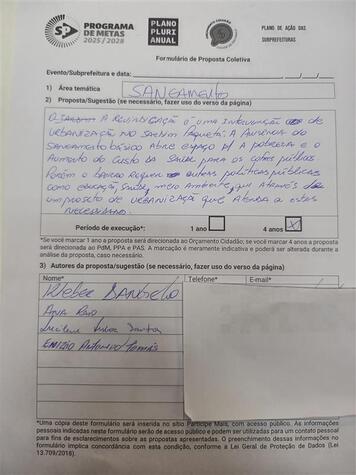 PROGRAMA
DE METAS
2025 / 2028
PLANO
PLURI
ANUAL
PLANO DE AÇÃO DAS
SUBPREFEITURAS
Formulário de Proposta Coletiva
Evento/Subprefeitura e data:
1) Área temática
SANEAMENTO
2) Proposta/Sugestão (se necessário, fazer uso do verso da página)
A REIVINDICAÇÃO é uma INTERVENÇÃO de
URBANIZAÇÃO NO JARDIM PAQUETÁ. A AUSÊNCIA DO
SANEAMENTO básico Abre espaço p/ A pobreza e o
Aumento do Custo da Saúde para os cofres públicos.
Porém o bairro Requer outras políticas públicas
como educação, Saúde, meio Ambiente, que Através
um projeto de URBANIZAÇÃO que Atenda a estas
necessidades.
Período de execução*: 1 ano 4 anos X
*Se você marcar 1 ano a proposta será direcionada ao Orçamento Cidadão; se você marcar 4 anos a proposta
será direcionada ao PdM, PPA e PAS. A marcação é meramente indicativa e poderá ser alterada durante a
análise da proposta, caso necessário.
3) Autores da proposta/sugestão (se necessário, fazer uso do verso da página)
Nome* Telefone* E-mail*
Kleber
ANA
Lucilene
ENIZIO Antonio
*Uma cópia deste formulário será inserida no sítio Participe Mais, com acesso público. As informações
pessoais indicadas neste formulário serão de acesso público e podem ser utilizadas para um contato pessoal
para fins de esclarecimentos sobre as propostas apresentadas. O preenchimento dessas informações no
formulário implica concordância com esta condição, conforme a Lei Geral de Proteção de Dados (Lei
13.709/2018).